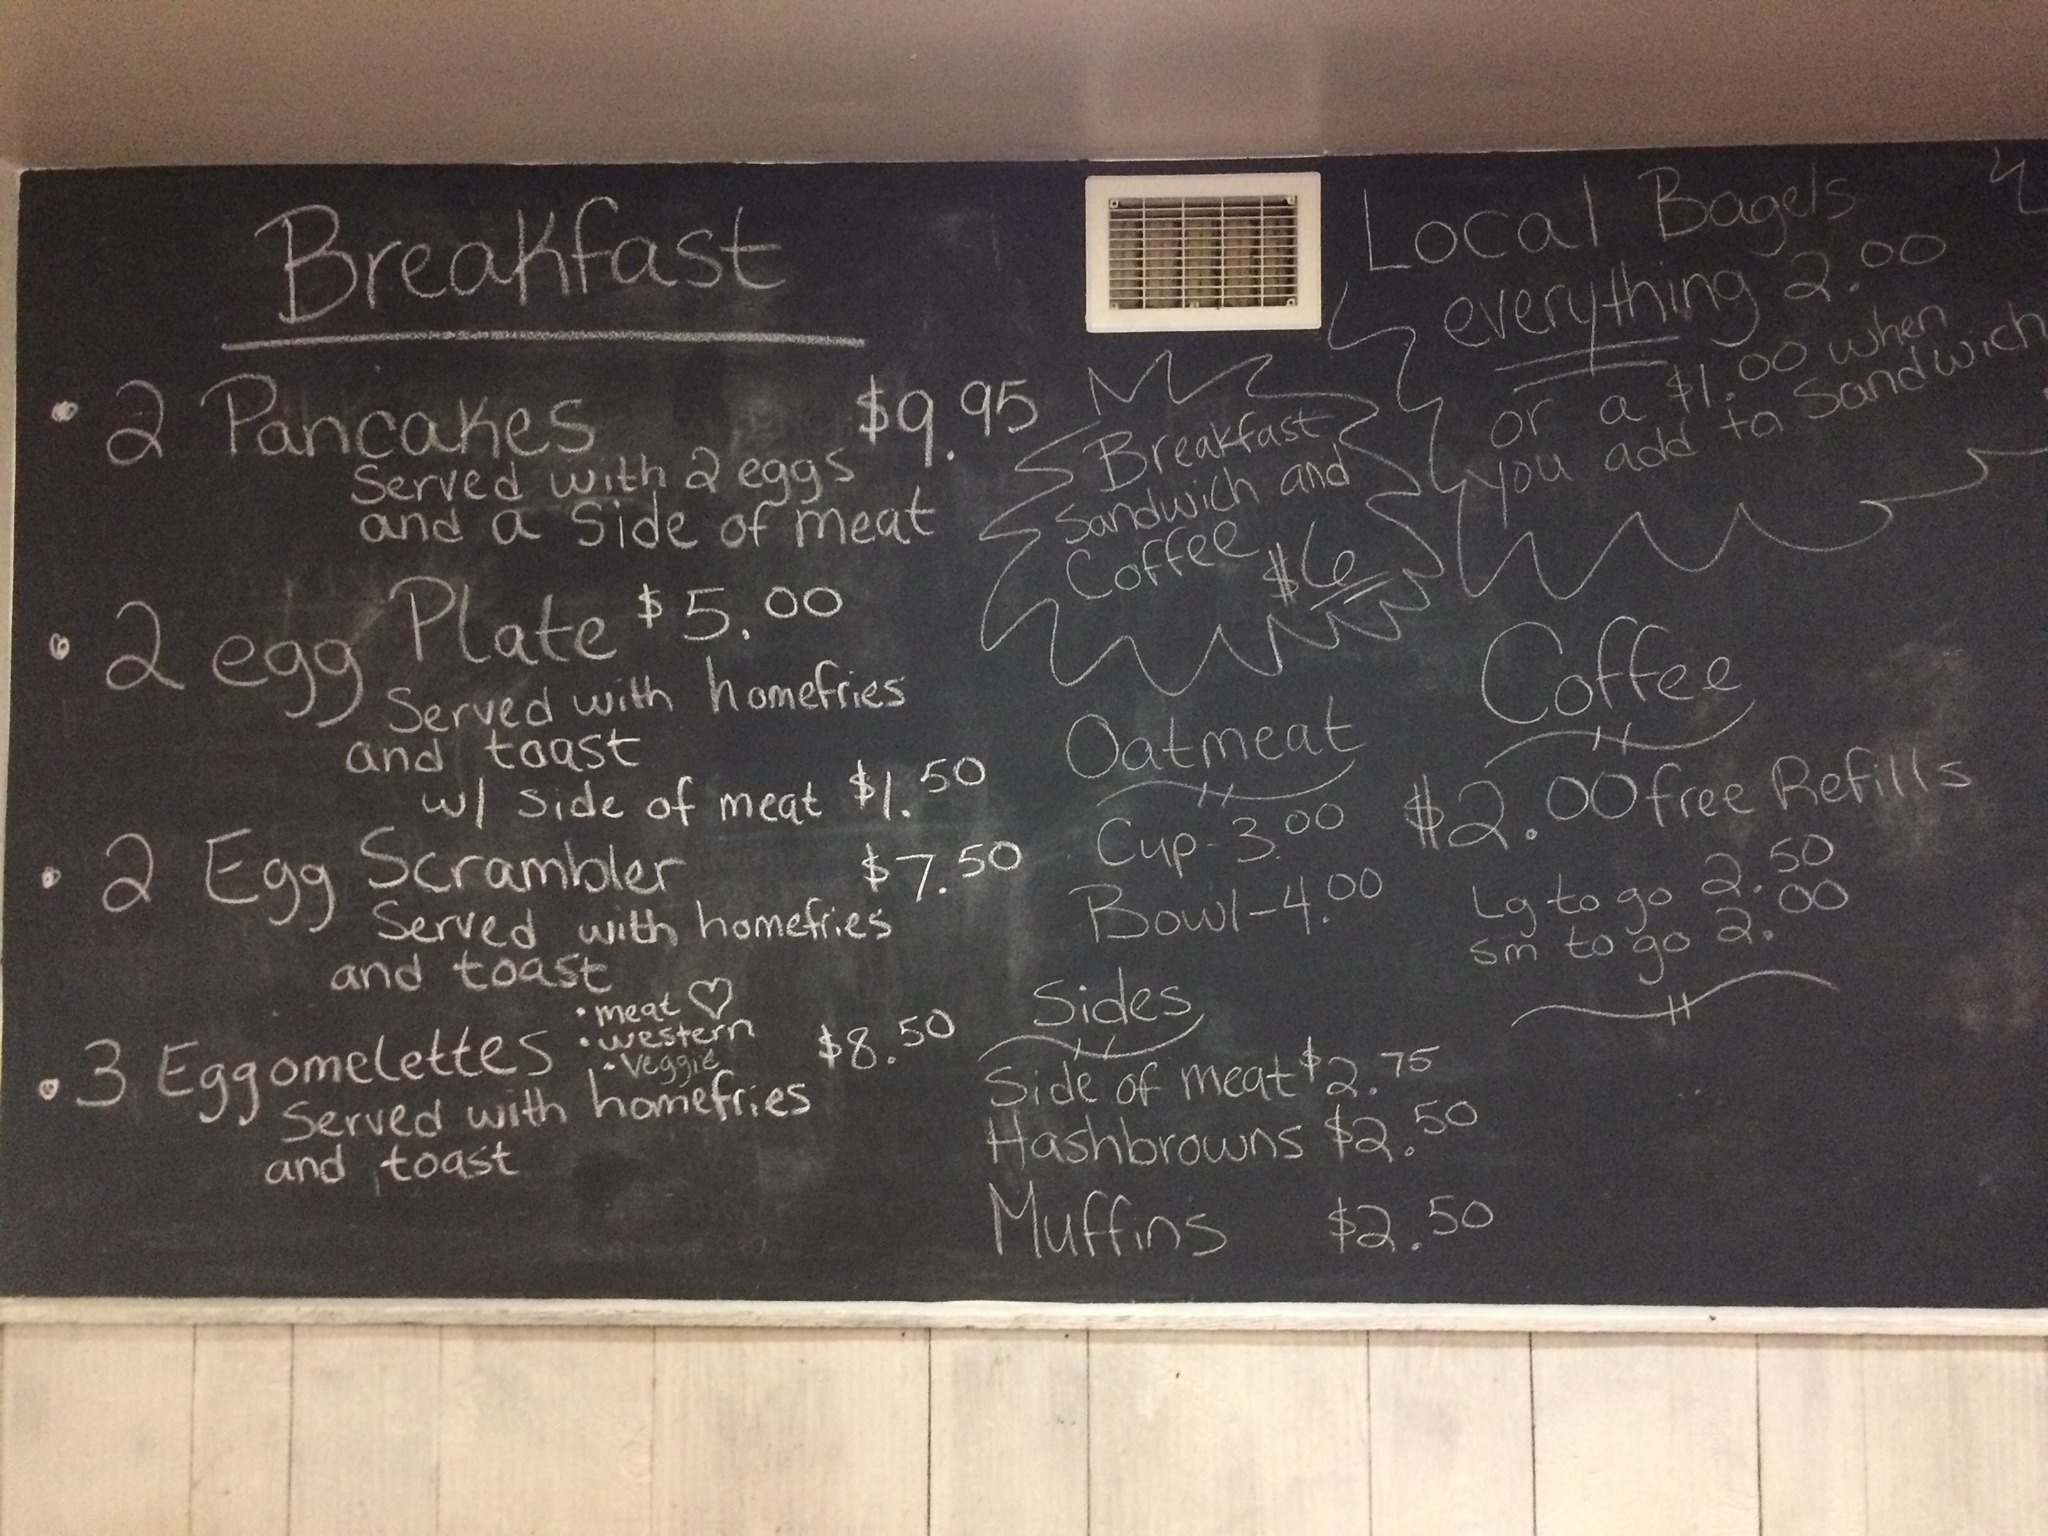 Breakfast
• 2 Pancakes $9.95
Served with 2 eggs
and a Side of meat
• 2 egg Plate $5.00
Served with homefries
and toast
w/ side of meat $1.50
• 2 Egg Scrambler $7.50
Served with homefries
and toast
• 3 Eggomelettes $8.50
• meat ♡
• western
• Veggie
Served with homefries
and toast
Breakfast
Sandwich and
Coffee $6
Local Bagels
everything 2.00
or a $1.00 when
you add to Sandwich
Oatmeat
Cup - 3.00
Bowl - 4.00
Coffee
$2.00 free Refills
Lg to go 2.50
sm to go 2.00
Sides
Side of meat $2.75
Hashbrowns $2.50
Muffins $2.50